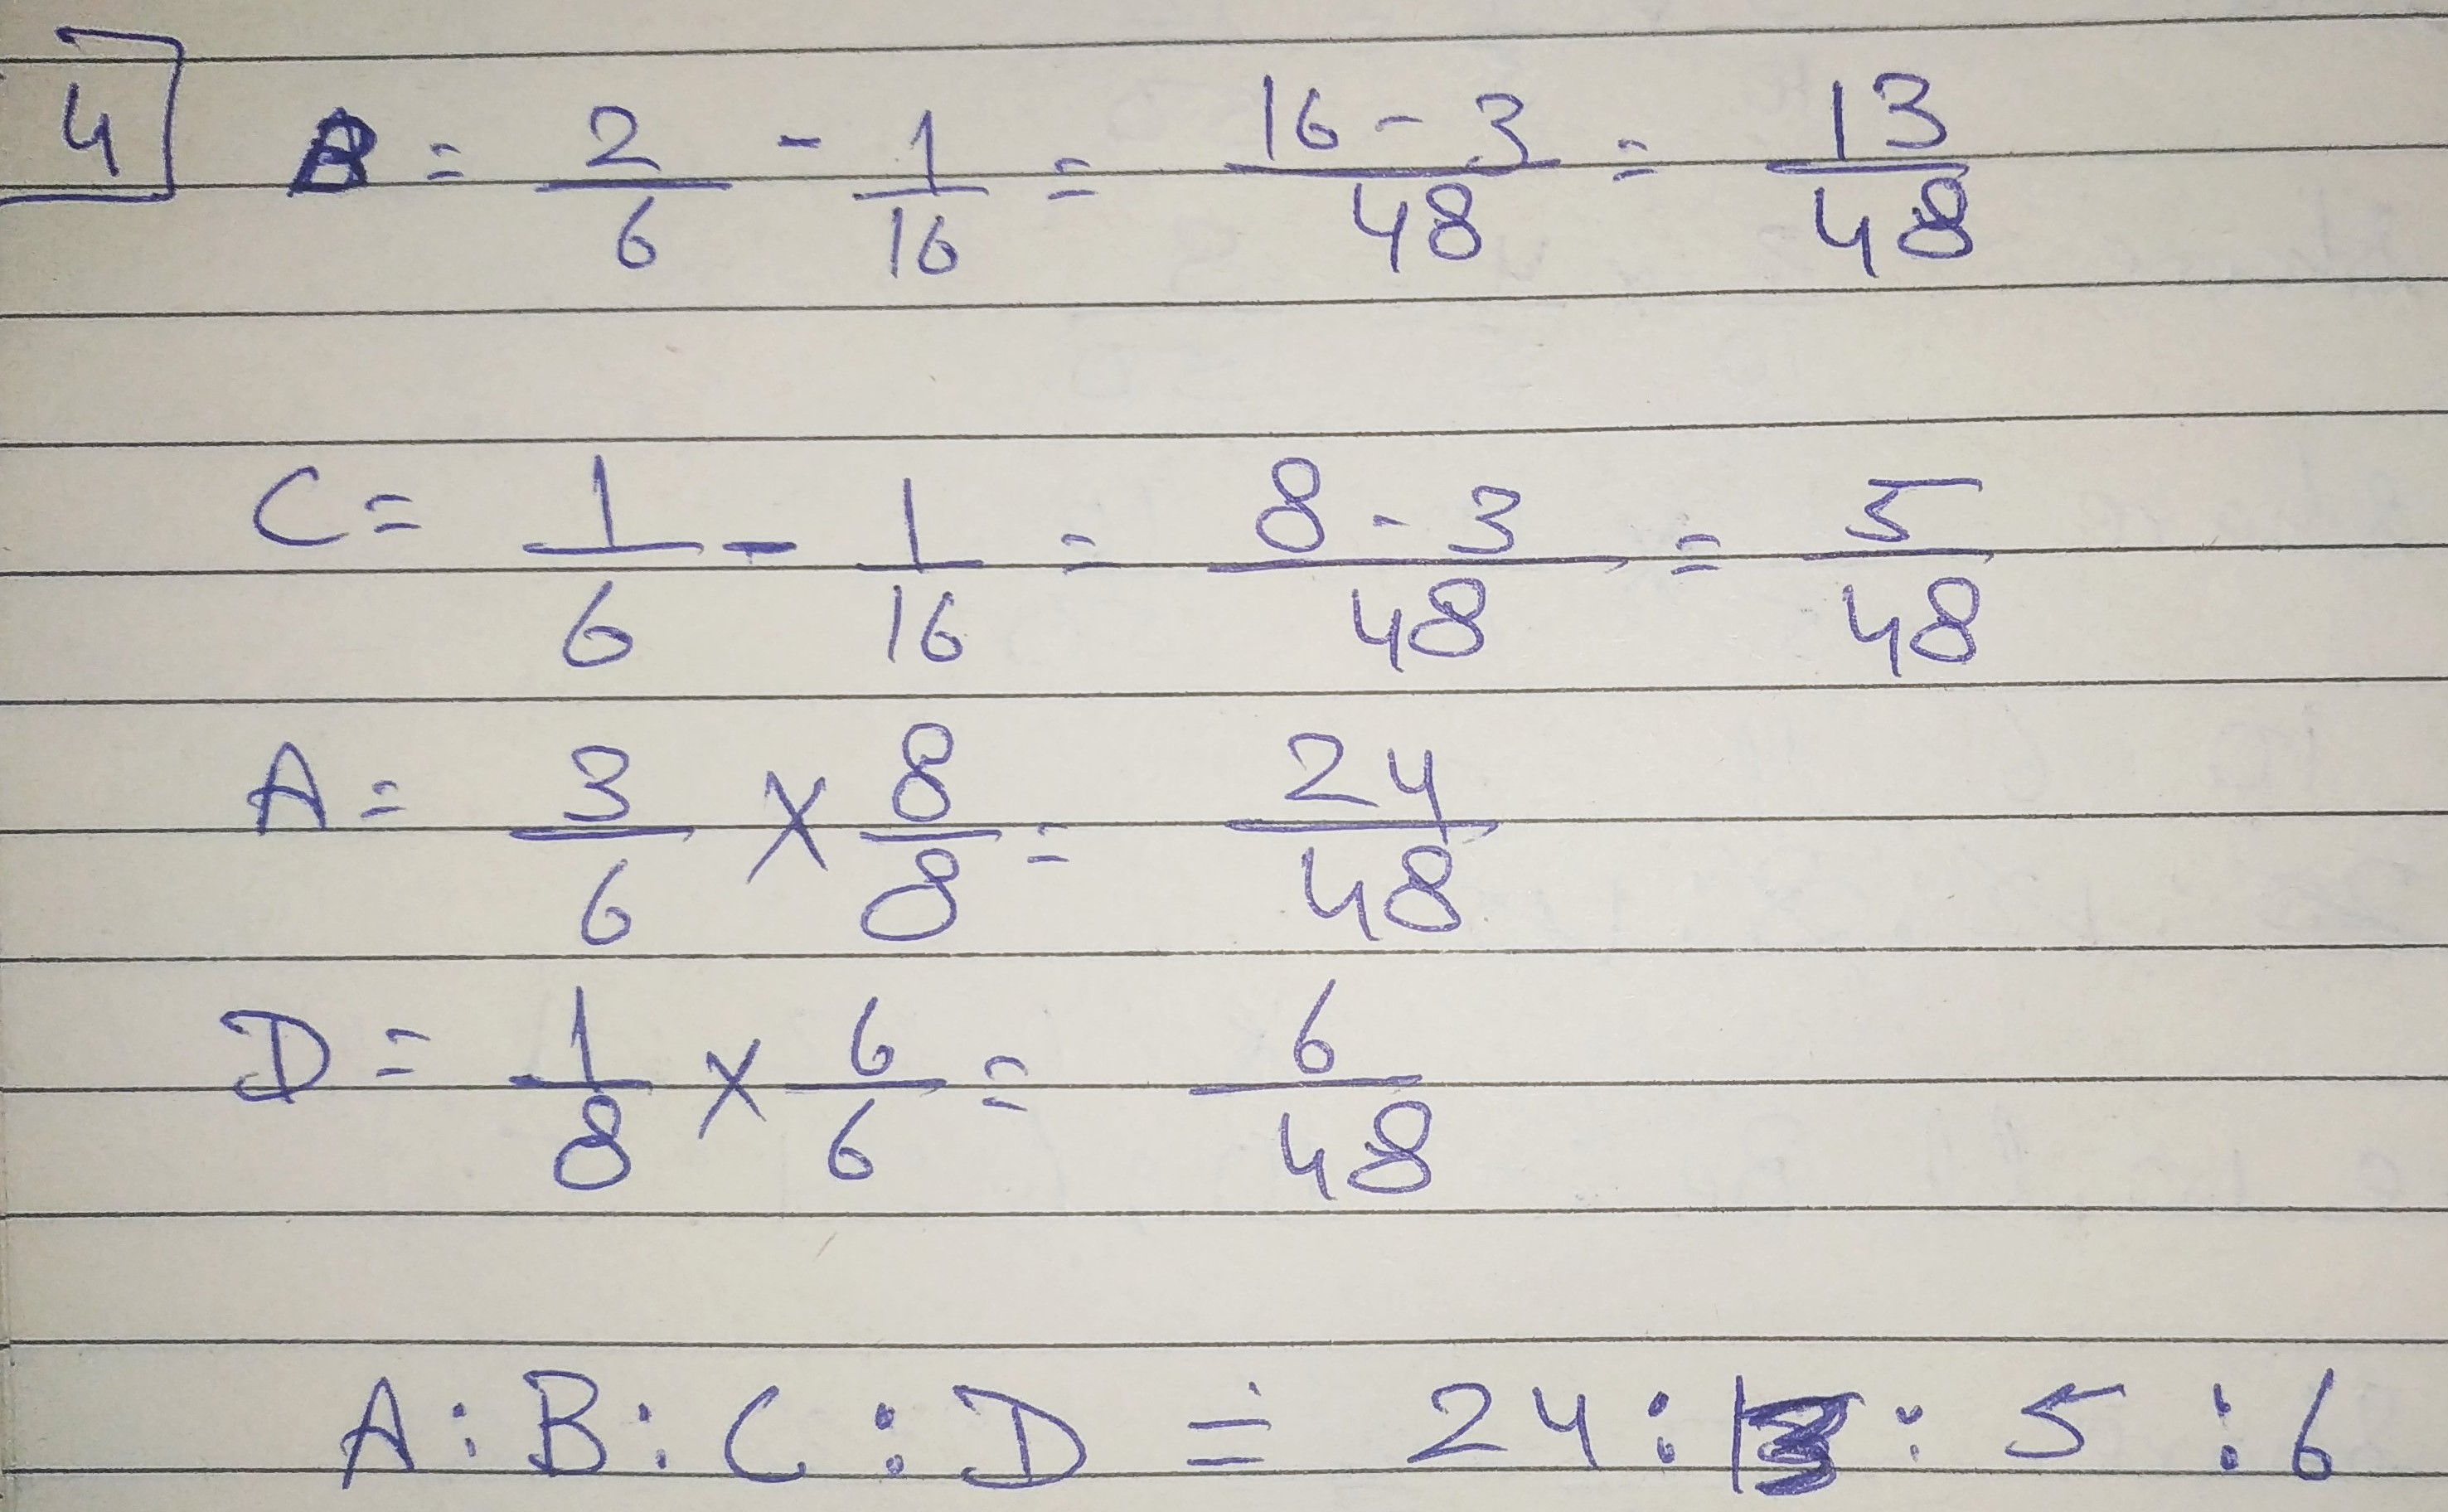 4 B = 2/6 - 1/16 = 16-3/48 = 13/48
C = 1/6 - 1/16 = 8-3/48 = 5/48
A = 3/6 × 8/8 = 24/48
D = 1/8 × 6/6 = 6/48
A : B : C : D = 24 : 13 : 5 : 6